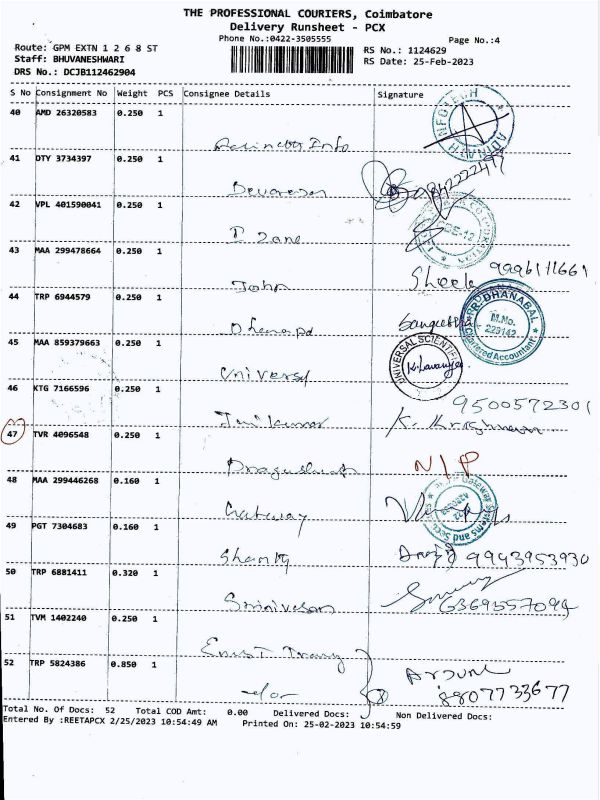 THE PROFESSIONAL COURIERS, Coimbatore
Delivery Runsheet - PCX
Phone No.:0422-3505555
Page No.:4
Route: GPM EXTN 1 2 6 8 ST
Staff: BHUVANESHWARI
DRS No.: DCJB112462904
RS No.: 1124629
RS Date: 25-Feb-2023
S No Consignment No Weight PCS Consignee Details Signature
40 AMD 26320583 0.250 1
INFOTECH
41 DTY 3734397 0.250 1
Devarasan
42 VPL 401590041 0.250 1
43 MAA 299478664 0.250 1
John Sheela 9996111661
44 TRP 6944579 0.250 1
Sangeetha
DHANABAL
M.No.
229142
Chartered Accountant
45 MAA 859379663 0.250 1
Universal
UNIVERSAL SCIENTIFIC
K. Lavanya
46 KTG 7166596 0.250 1
9500572301
47 TVR 4096548 0.250 1
NIP
48 MAA 299446268 0.160 1
Gateway
Gateway Systems and
49 PGT 7304683 0.160 1
9943953930
50 TRP 6881411 0.320 1
Srinivasan
6369557094
51 TVM 1402240 0.250 1
52 TRP 5824386 0.850 1
-do-
8807733677
Total No. Of Docs: 52 Total COD Amt: 0.00 Delivered Docs: Non Delivered Docs:
Entered By :REETAPCX 2/25/2023 10:54:49 AM Printed On: 25-02-2023 10:54:59